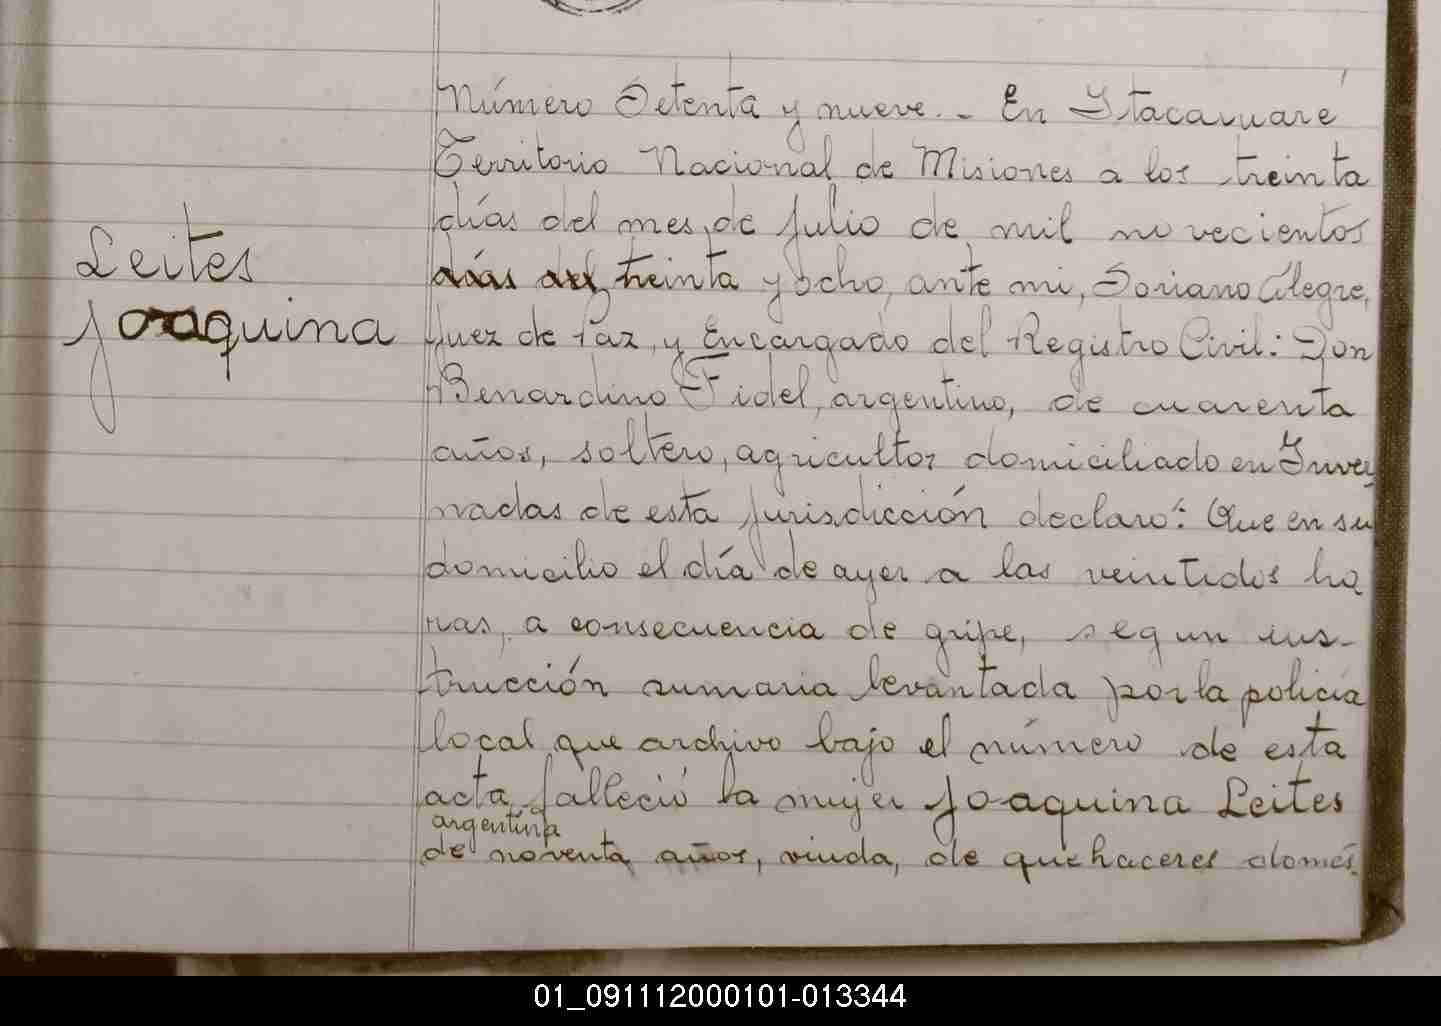 Leites
Joaquina
Número Setenta y nueve.- En Itacaruaré
Territorio Nacional de Misiones a los treinta
días del mes de Julio de mil novecientos
treinta y ocho, ante mi, Soriano Alegre,
Juez de Paz, y Encargado del Registro Civil: Don
Benardino Fidel, argentino, de cuarenta
años, soltero, agricultor domiciliado en Inver
nadas de esta jurisdicción declaró: Que en su
domicilio el día de ayer a las veintidos ho
ras, a consecuencia de gripe, segun ins-
trucción sumaria levantada por la policía
local que archivo bajo el número de esta
acta, falleció la mujer Joaquina Leites
argentina
de noventa años, viuda, de quehaceres domés
01_091112000101-013344